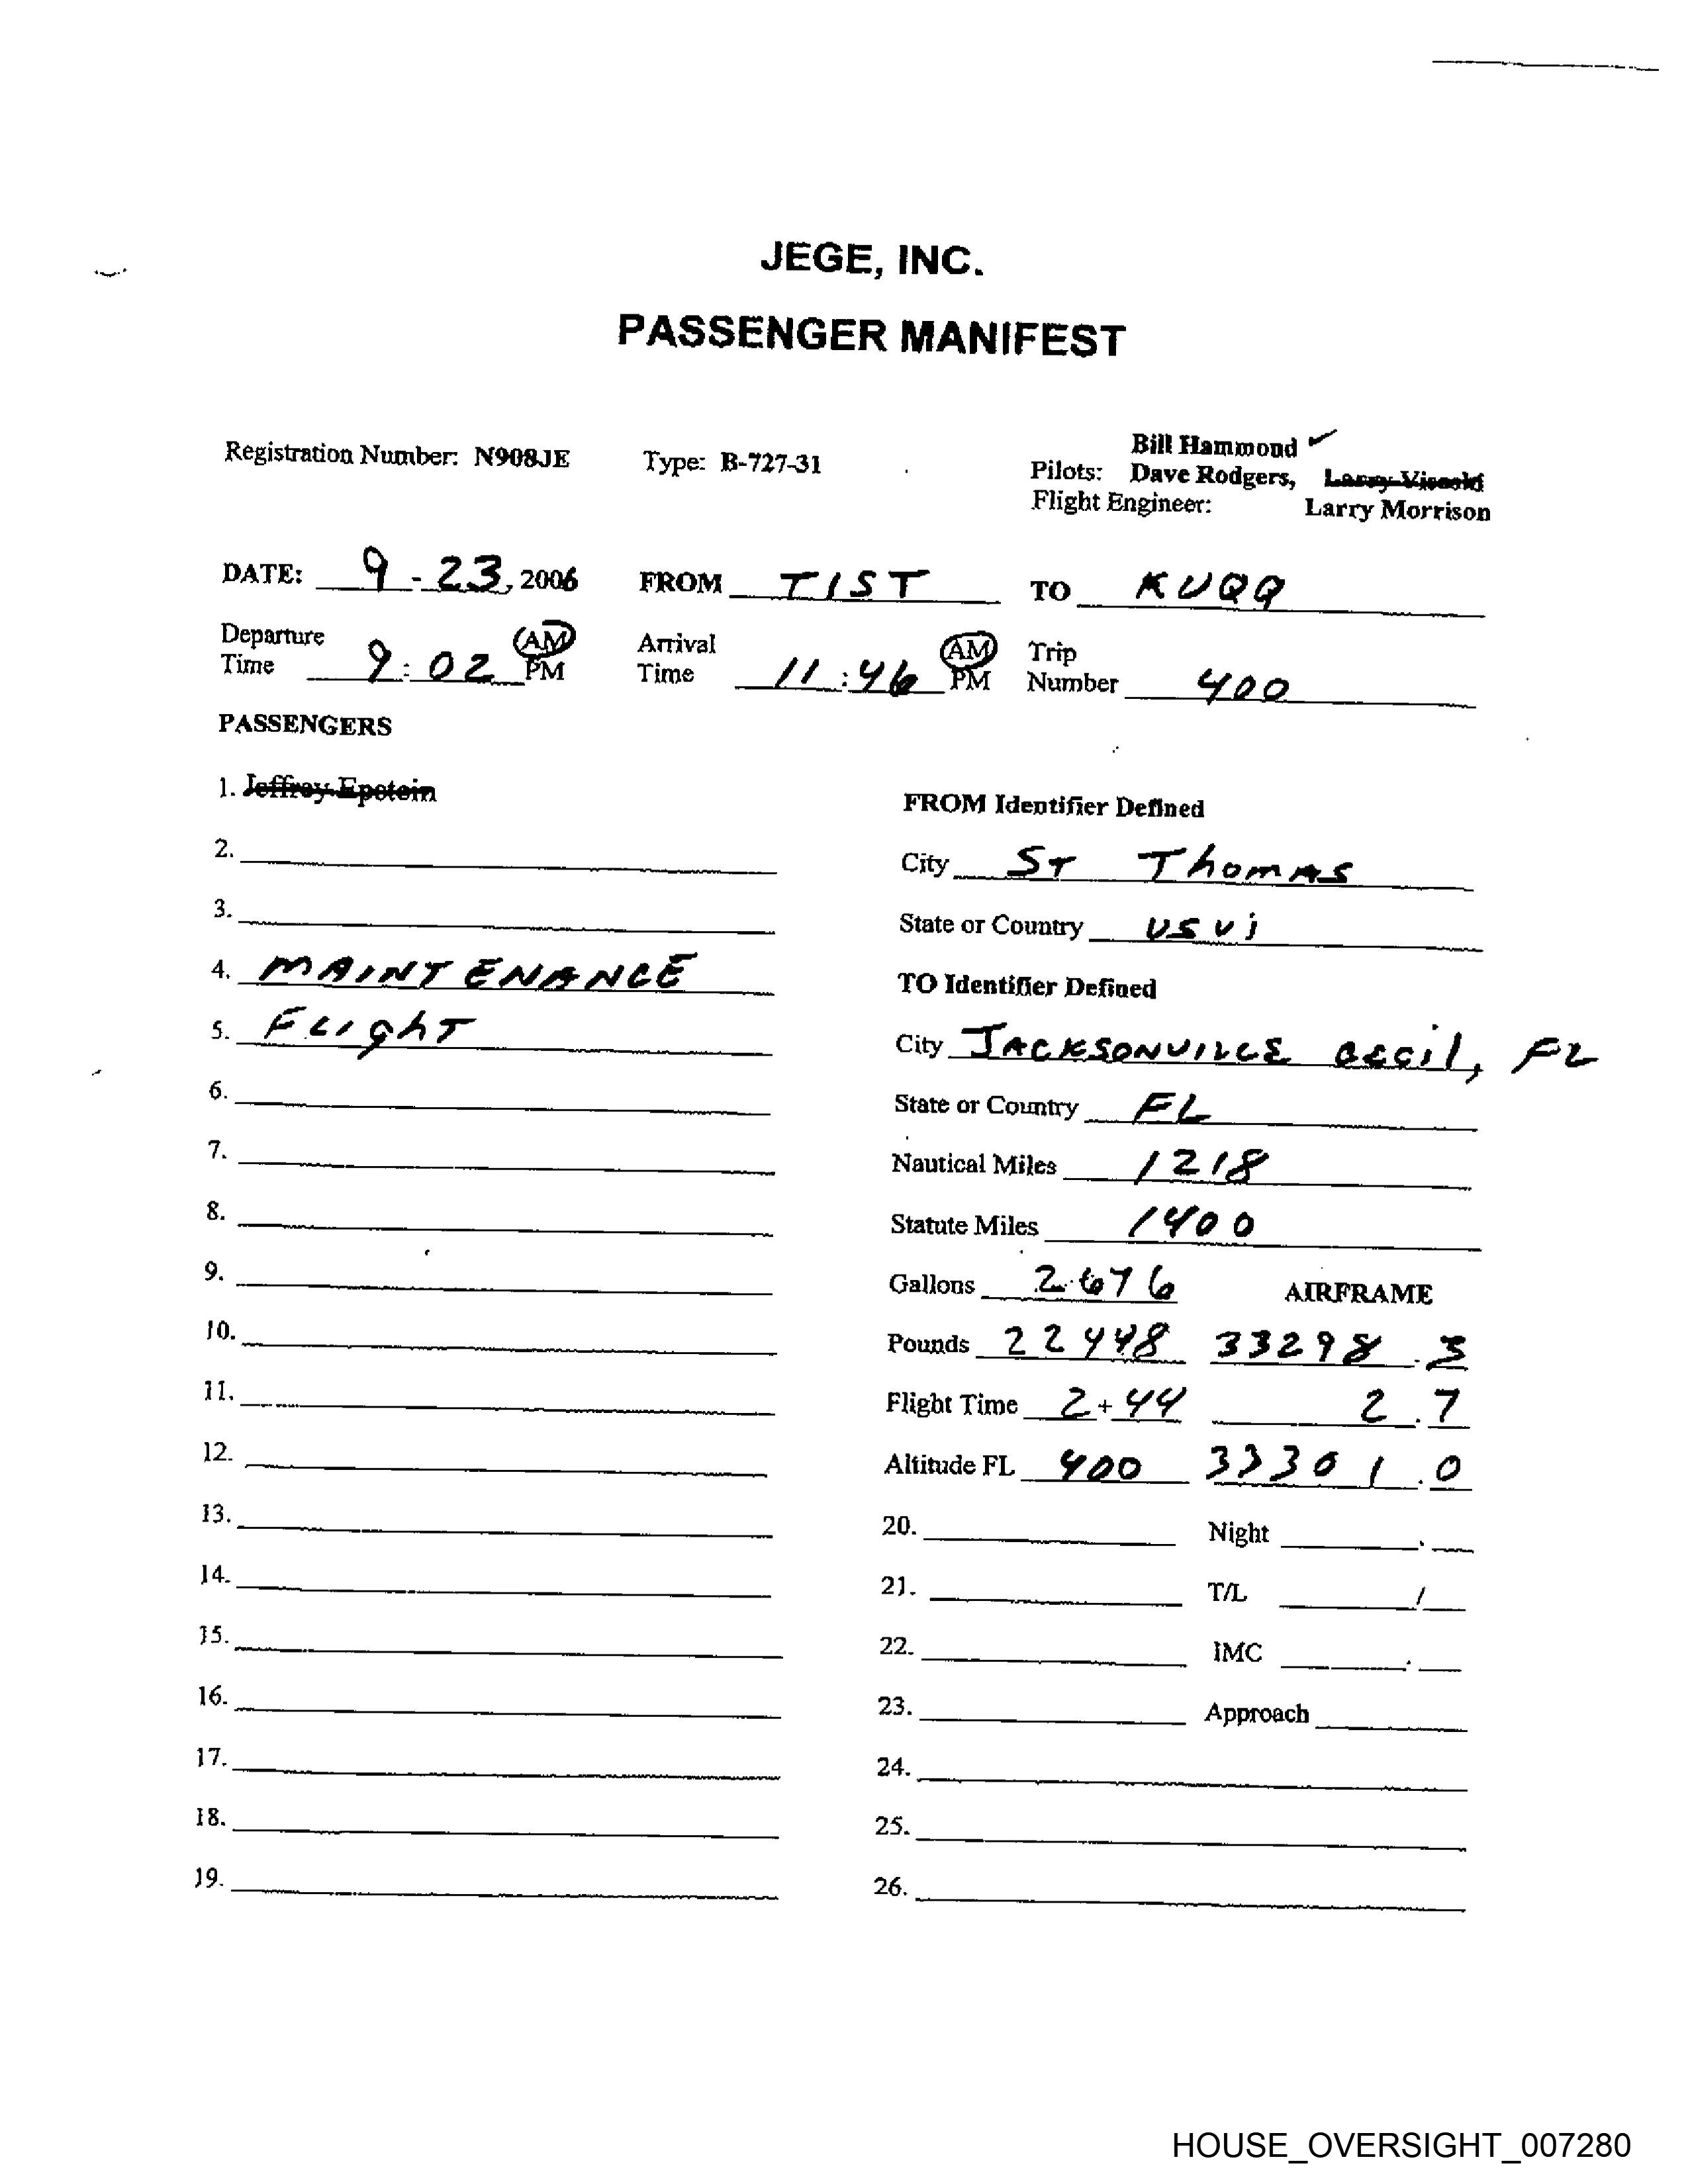 JEGE, INC.
PASSENGER MANIFEST
Bill Hammond ✓
Registration Number: N908JE Type: B-727-31 Pilots: Dave Rodgers, Larry Visoski
Flight Engineer: Larry Morrison
DATE: 9-23, 2006 FROM TIST TO KUQQ
Departure Time 9:02 AM PM Arrival Time 11:46 AM PM Trip Number 400
PASSENGERS
1. Jeffrey Epstein
FROM Identifier Defined
2.
City ST Thomas
3.
State or Country USVi
4. MAINTENANCE
TO Identifier Defined
5. FLighT
City JACKSONVILLE Cecil, FL
6.
State or Country FL
7.
Nautical Miles 1218
8.
Statute Miles 1400
9.
Gallons 2676 AIRFRAME
10.
Pounds 22448 33298.3
11.
Flight Time 2+44 2.7
12.
Altitude FL 400 33301.0
13.
20. Night .
14.
21. T/L /
15.
22. IMC .
16.
23. Approach
17.
24.
18.
25.
19.
26.
HOUSE_OVERSIGHT_007280